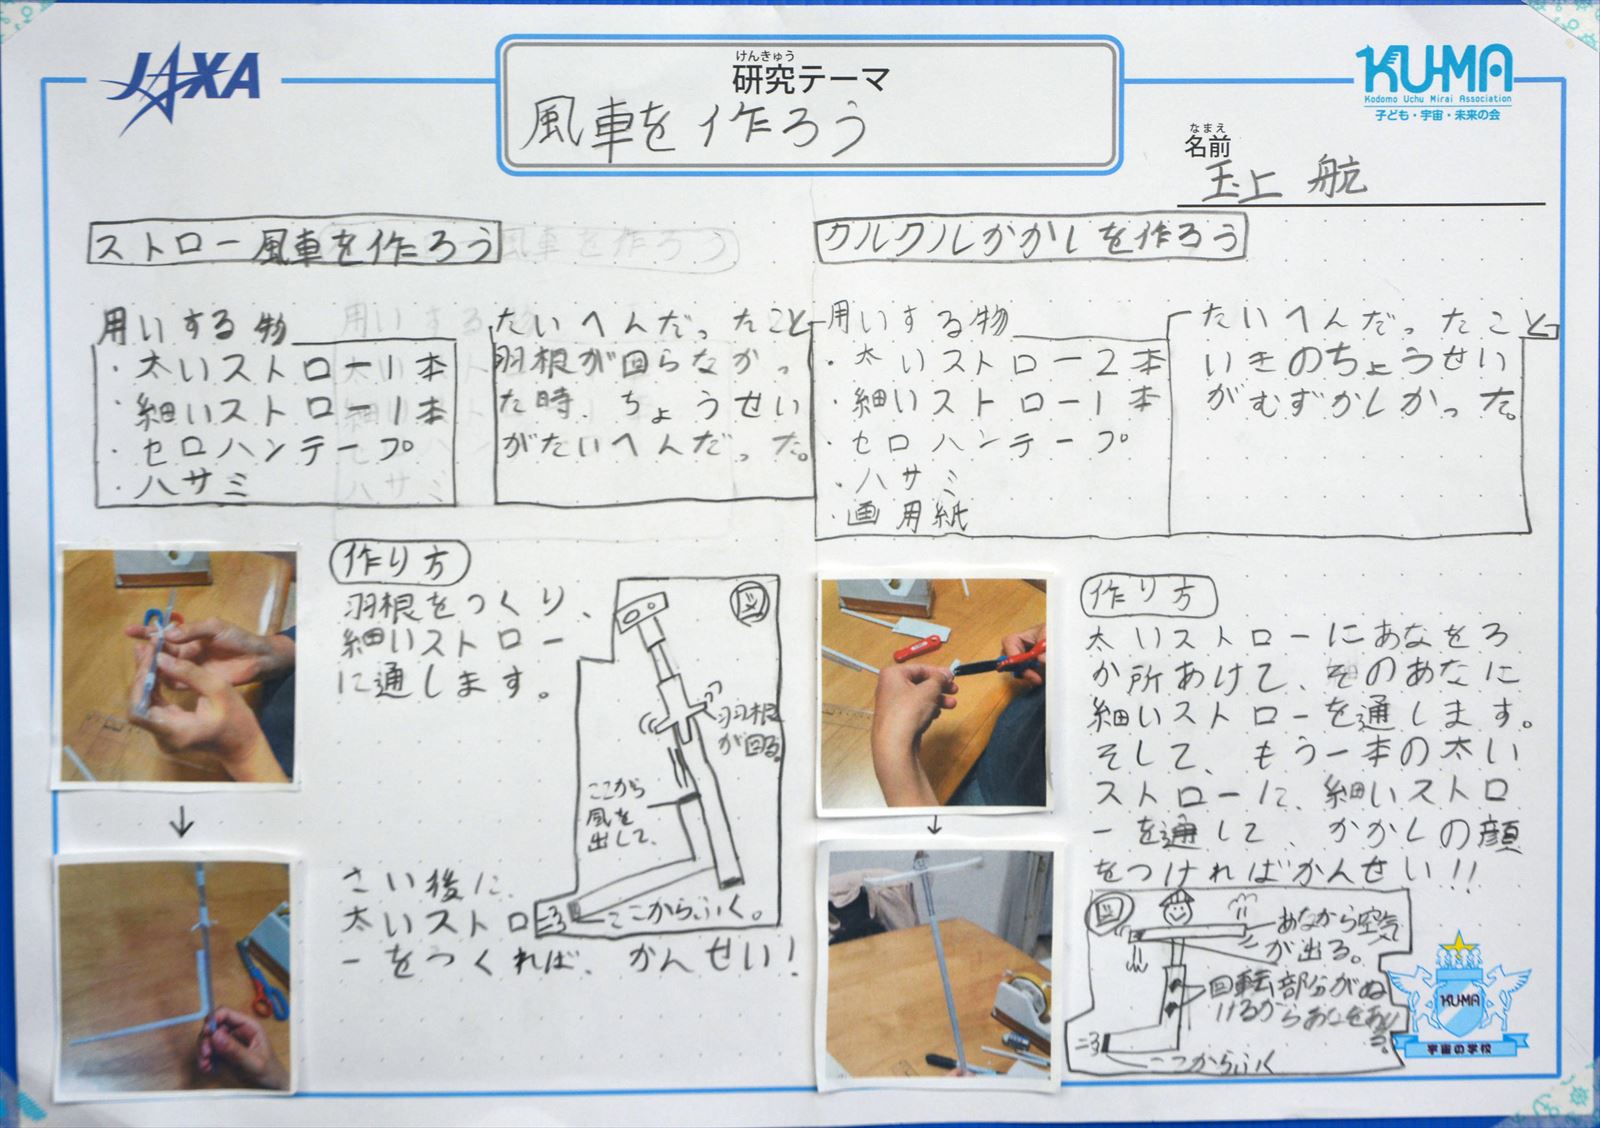 JAXA
けんきゅう
研究テーマ
風車を作ろう
KU-MA
Kodomo Uchu Mirai Association
子ども・宇宙・未来の会
なまえ
名前
玉上 航
ストロー風車を作ろう
用いする物
・太いストロー1本
・細いストロー1本
・セロハンテープ
・ハサミ
たいへんだったこと
羽根が回らなかっ
た時、ちょうせい
がたいへんだった。
作り方
羽根をつくり、
細いストロー
に通します。
図
羽根
が回る。
ここから
風を
出して、
ここからふく。
さい後に、
太いストロ
ーをつくれば、かんせい!
クルクルかかしを作ろう
用いする物
・太いストロー2本
・細いストロー1本
・セロハンテープ
・ハサミ
・画用紙
たいへんだったこと
いきのちょうせい
がむずかしかった。
作り方
太いストローにあなをろ
か所あけて、そのあなに
細いストローを通します。
そして、もう一本の太い
ストローに、細いストロ
ーを通して、かかしの顔
をつければかんせい!!
図
あなから空気
が出る。
回転部分がぬ
けるから
ここからふく
KU-MA
宇宙の学校